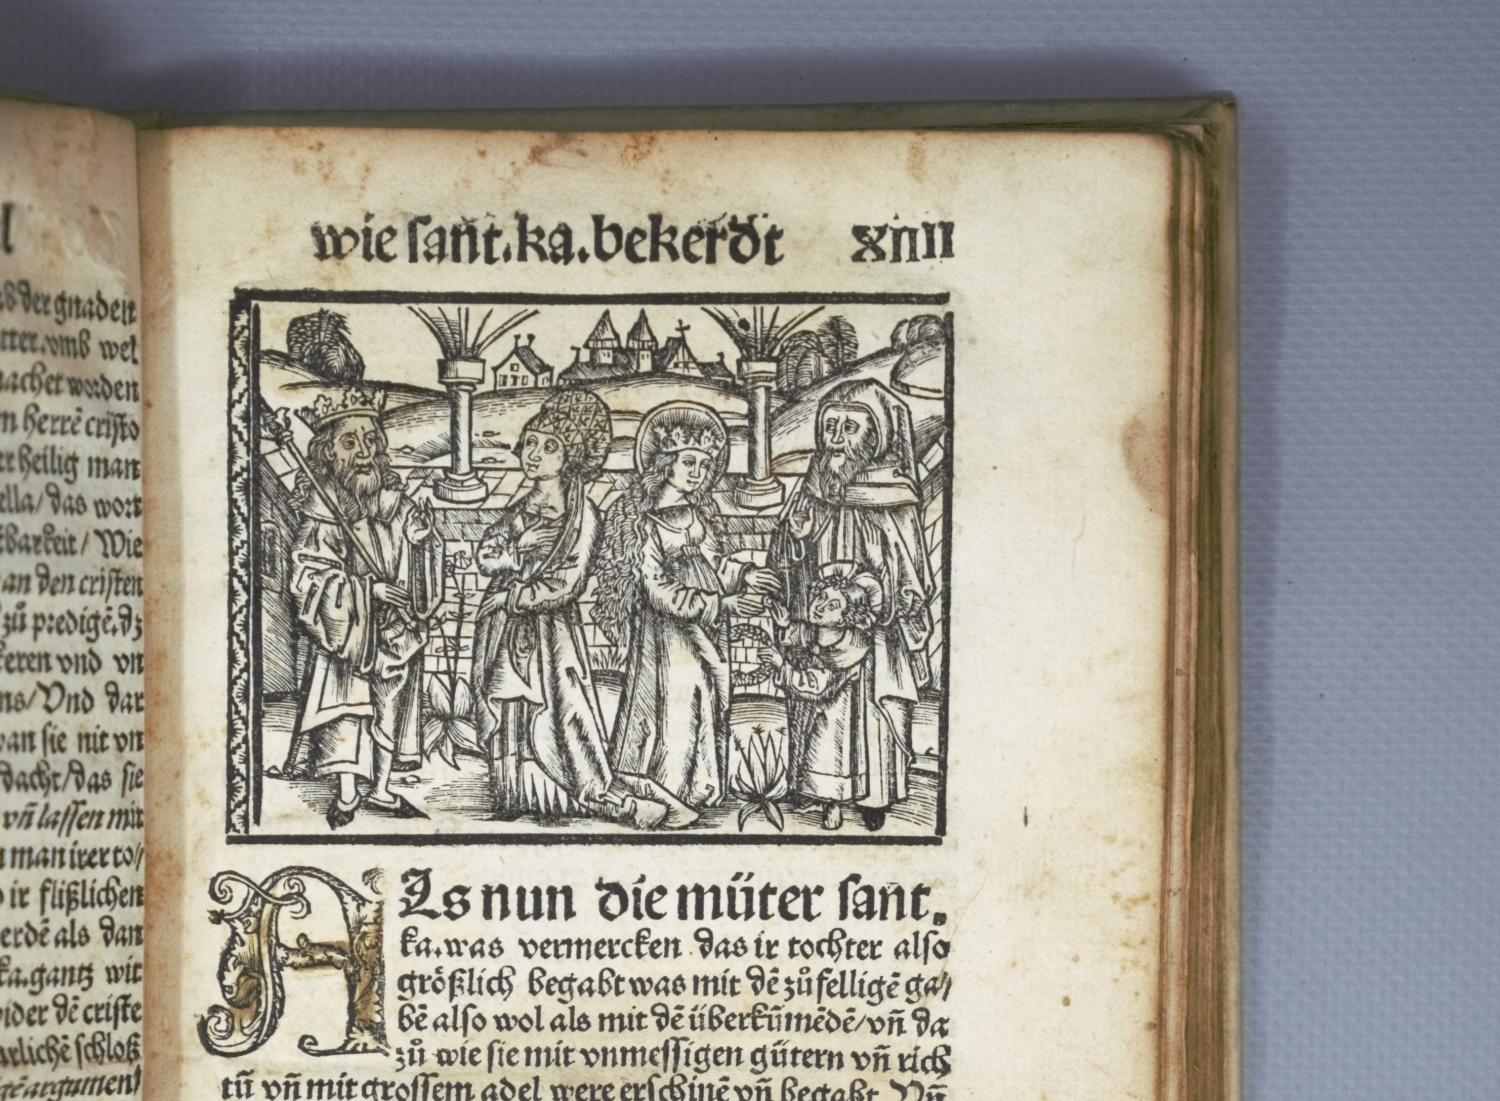 l
der gnaden
tter. vmb wel
machet worden
m herrē cristo
er heilig man
ella/ das wort
tbarkeit / Wie
an den cristen
zů predigē. dz
keren vnd vn
ns/ Vnd dar
wan sie nit vn
dacht/ das sie
vñ lassen mir
man irer to/
ir flißlichen
werdē als dan
ka. gantz wit
wider dē criste
arlichē schloß
argument
wie sañt. ka. bekerdt XIIII
Als nun die müter sant.
ka. was vermercken das ir tochter also
größlich begabt was mit dē zůfelligē ga/
bē also wol als mit dē überkūmēdē/ vñ da
zů wie sie mit vnmessigen gütern vñ rich
tū vñ mit grossem adel were erschinē vñ begabt. Vñ